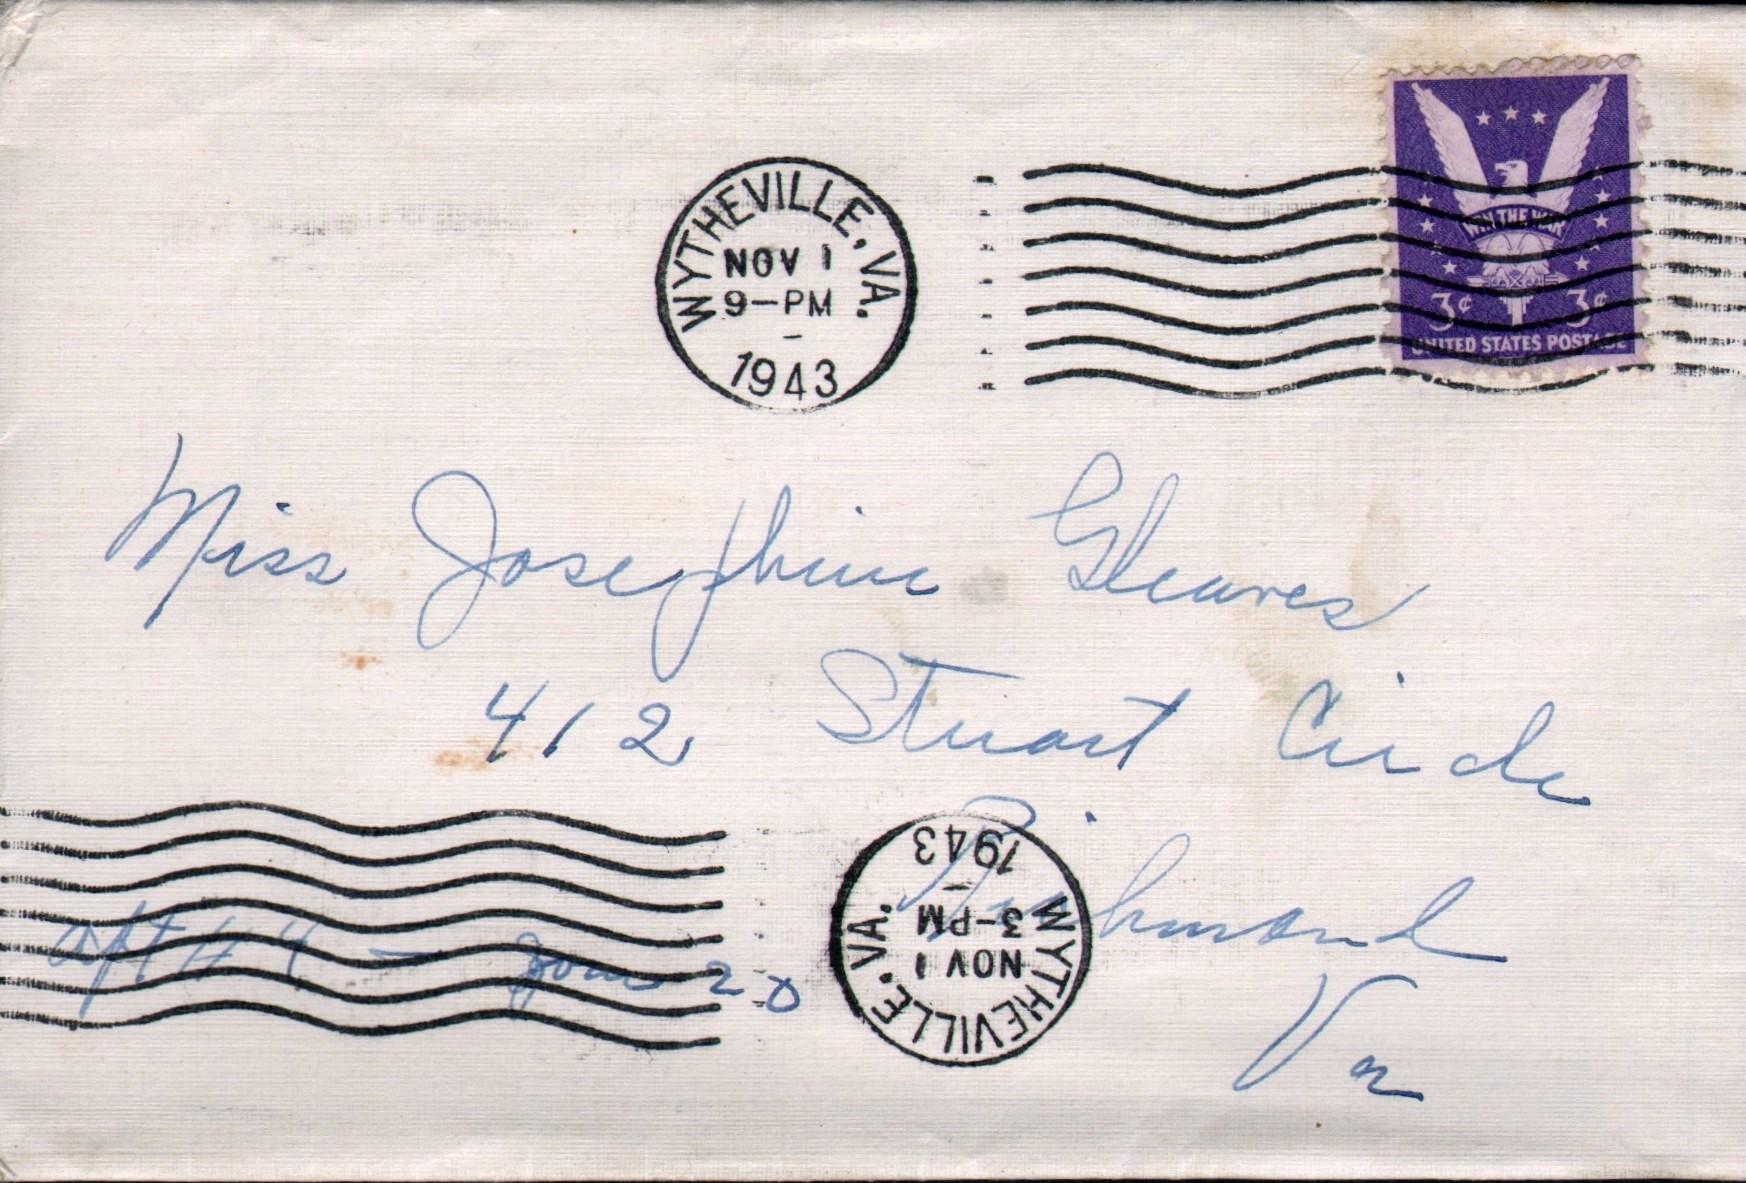 WYTHEVILLE, VA.
NOV 1
9-PM
1943
WIN THE WAR
3¢ 3¢
UNITED STATES POSTAGE
Miss Josephine Gleaves
412 Stuart Circle
Richmond
Va
apt # 4 -
WYTHEVILLE, VA.
NOV 1
3-PM
1943